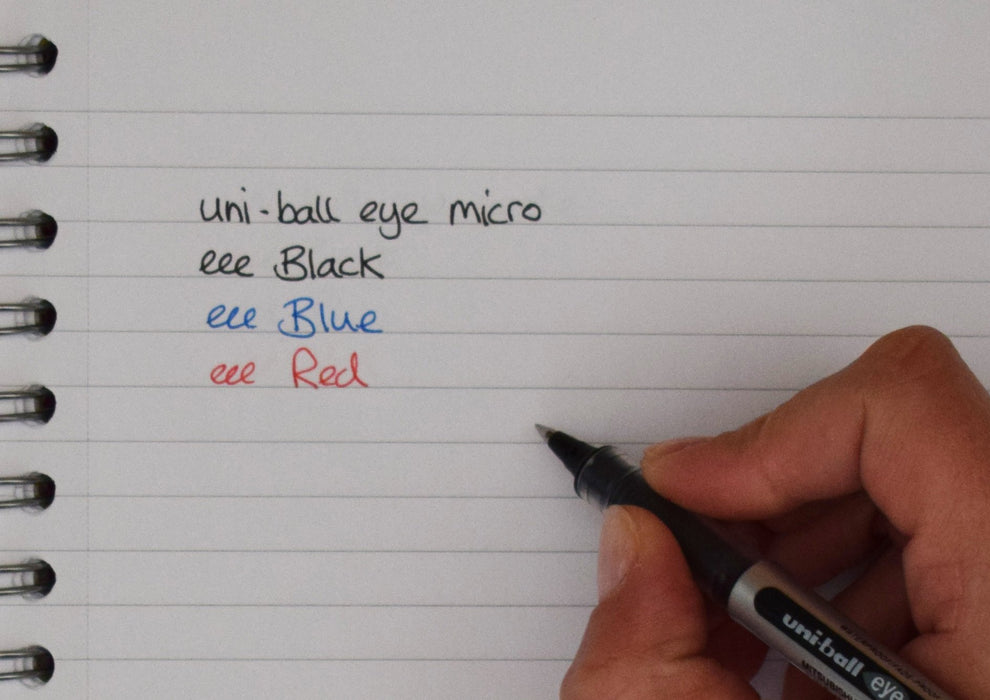 uni-ball eye micro
eee Black
eee Blue
eee Red
uni-ball eye
MITSUBISHI